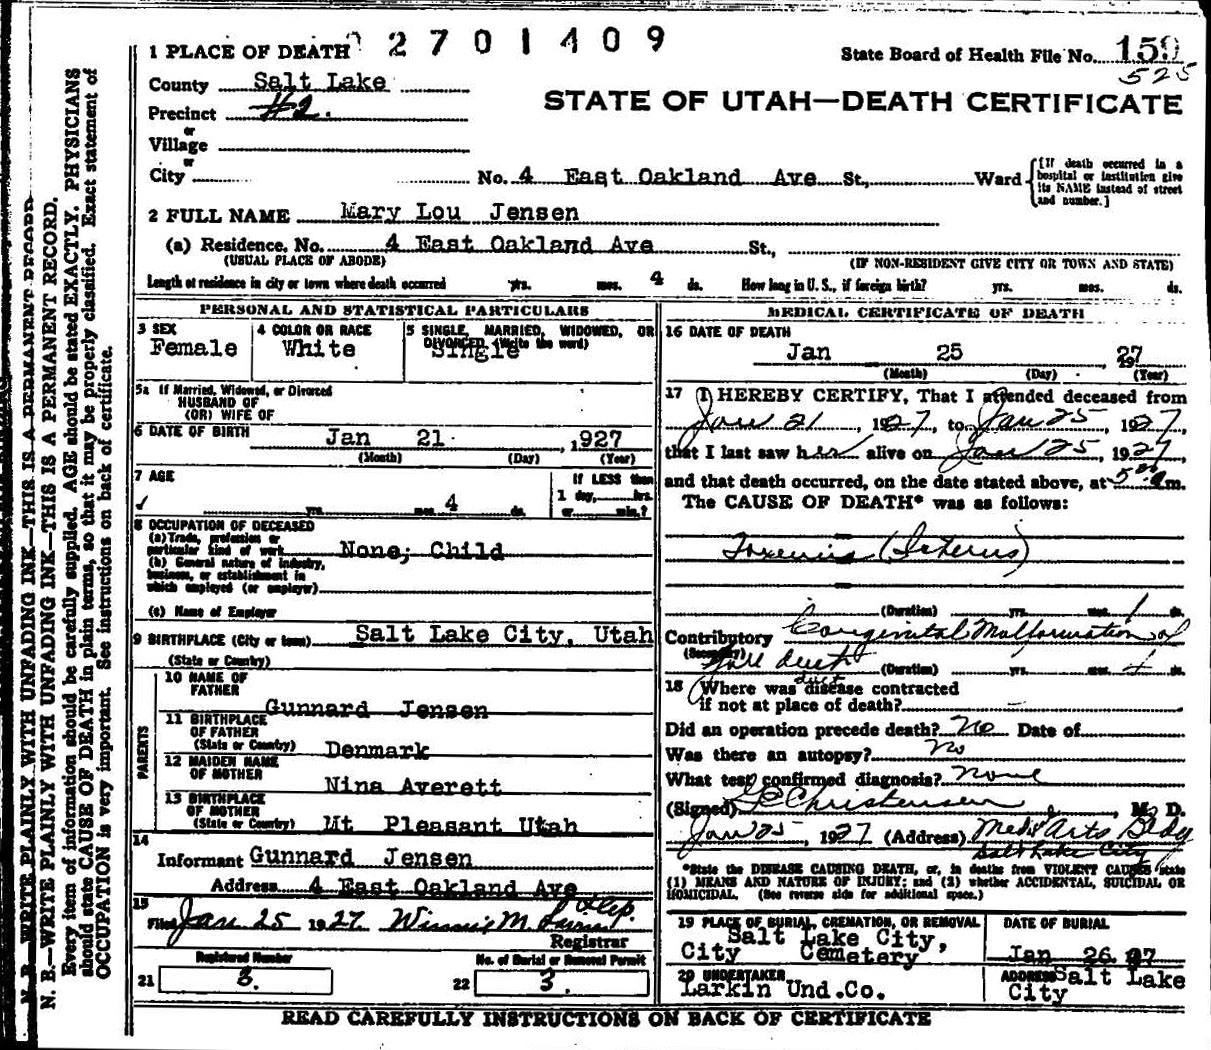 1 PLACE OF DEATH 2701409
State Board of Health File No. 159
525
County Salt Lake
STATE OF UTAH—DEATH CERTIFICATE
Precinct #2.
or
Village
or
City No. 4 East Oakland Ave St., Ward
[If death occurred in a
hospital or institution give
its NAME instead of street
and number.]
2 FULL NAME Mary Lou Jensen
(a) Residence, No. 4 East Oakland Ave St.,
(USUAL PLACE OF ABODE) (IF NON-RESIDENT GIVE CITY OR TOWN AND STATE)
Length of residence in city or town where death occurred yrs. mos. 4 ds. How long in U. S., if foreign birth? yrs. mos. ds.
PERSONAL AND STATISTICAL PARTICULARS
3 SEX
Female
4 COLOR OR RACE
White
5 SINGLE, MARRIED, WIDOWED, OR
DIVORCED (Write the word)
Single
5a If Married, Widowed, or Divorced
HUSBAND OF
(OR) WIFE OF
6 DATE OF BIRTH Jan 21 ,1927
(Month) (Day) (Year)
7 AGE
yrs. mos. 4 ds.
If LESS than
1 day, hrs.
or min.?
8 OCCUPATION OF DECEASED
(a) Trade, profession or
particular kind of work None; Child
(b) General nature of industry,
business, or establishment in
which employed (or employer)
(c) Name of Employer
9 BIRTHPLACE (City or town) Salt Lake City, Utah
(State or Country)
PARENTS
10 NAME OF
FATHER Gunnard Jensen
11 BIRTHPLACE
OF FATHER
(State or Country) Denmark
12 MAIDEN NAME
OF MOTHER Nina Averett
13 BIRTHPLACE
OF MOTHER
(State or Country) Mt Pleasant Utah
14
Informant Gunnard Jensen
Address 4 East Oakland Ave
15
Filed Jan 25 1927 Winnie M. Dep.
Registrar
Registered Number
21 3.
No. of Burial or Removal Permit
22 3.
MEDICAL CERTIFICATE OF DEATH
16 DATE OF DEATH
Jan 25 27
(Month) (Day) (Year)
17 I HEREBY CERTIFY, That I attended deceased from
Jan 21, 1927, to Jan 25, 1927,
that I last saw her alive on Jan 25, 1927,
and that death occurred, on the date stated above, at 5 m.
The CAUSE OF DEATH* was as follows:
Toxemia (Icterus)
(Duration) yrs. mos. 1 ds.
Contributory Congenital Malformation of
(Secondary) Gall duct (Duration) yrs. mos. 4 ds.
duct
18 Where was disease contracted
if not at place of death? –
Did an operation precede death? No Date of
Was there an autopsy? No
What test confirmed diagnosis? None
(Signed) Christensen, M. D.
Jan 25, 1927 (Address) Med. Arts Bldg
Salt Lake City
*State the DISEASE CAUSING DEATH, or, in deaths from VIOLENT CAUSES state
(1) MEANS AND NATURE OF INJURY; and (2) whether ACCIDENTAL, SUICIDAL OR
HOMICIDAL. (See reverse side for additional space.)
19 PLACE OF BURIAL, CREMATION, OR REMOVAL
Salt Lake City,
City Cemetery
DATE OF BURIAL
Jan 26. 27
20 UNDERTAKER
Larkin Und.Co.
ADDRESS Salt Lake
City
READ CAREFULLY INSTRUCTIONS ON BACK OF CERTIFICATE
N. B.—WRITE PLAINLY WITH UNFADING INK—THIS IS A PERMANENT RECORD
N. B.—WRITE PLAINLY WITH UNFADING INK—THIS IS A PERMANENT RECORD.
Every item of information should be carefully supplied. AGE should be stated EXACTLY. PHYSICIANS
should state CAUSE OF DEATH in plain terms, so that it may be properly classified. Exact statement of
OCCUPATION is very important. See instructions on back of certificate.